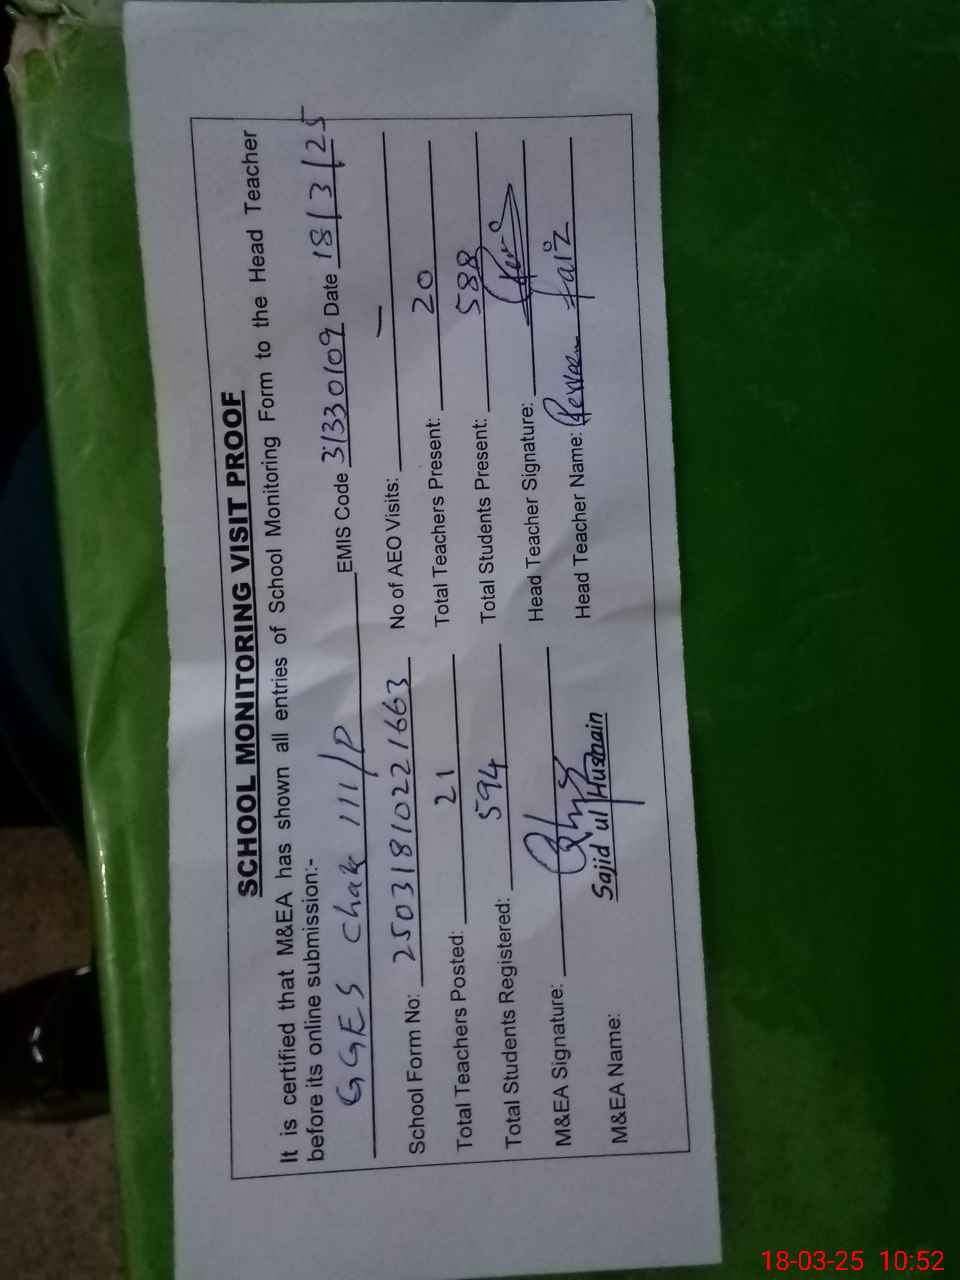 SCHOOL MONITORING VISIT PROOF
It is certified that M&EA has shown all entries of School Monitoring Form to the Head Teacher
before its online submission:-
GGES Chak 111/P EMIS Code 31330109 Date 18/3/25
School Form No: 25031810221663 No of AEO Visits: —
Total Teachers Posted: 21 Total Teachers Present: 20
Total Students Registered: 594 Total Students Present: 588
M&EA Signature: Head Teacher Signature:
M&EA Name: Sajid ul Husnain Head Teacher Name: Faiz
18-03-25 10:52